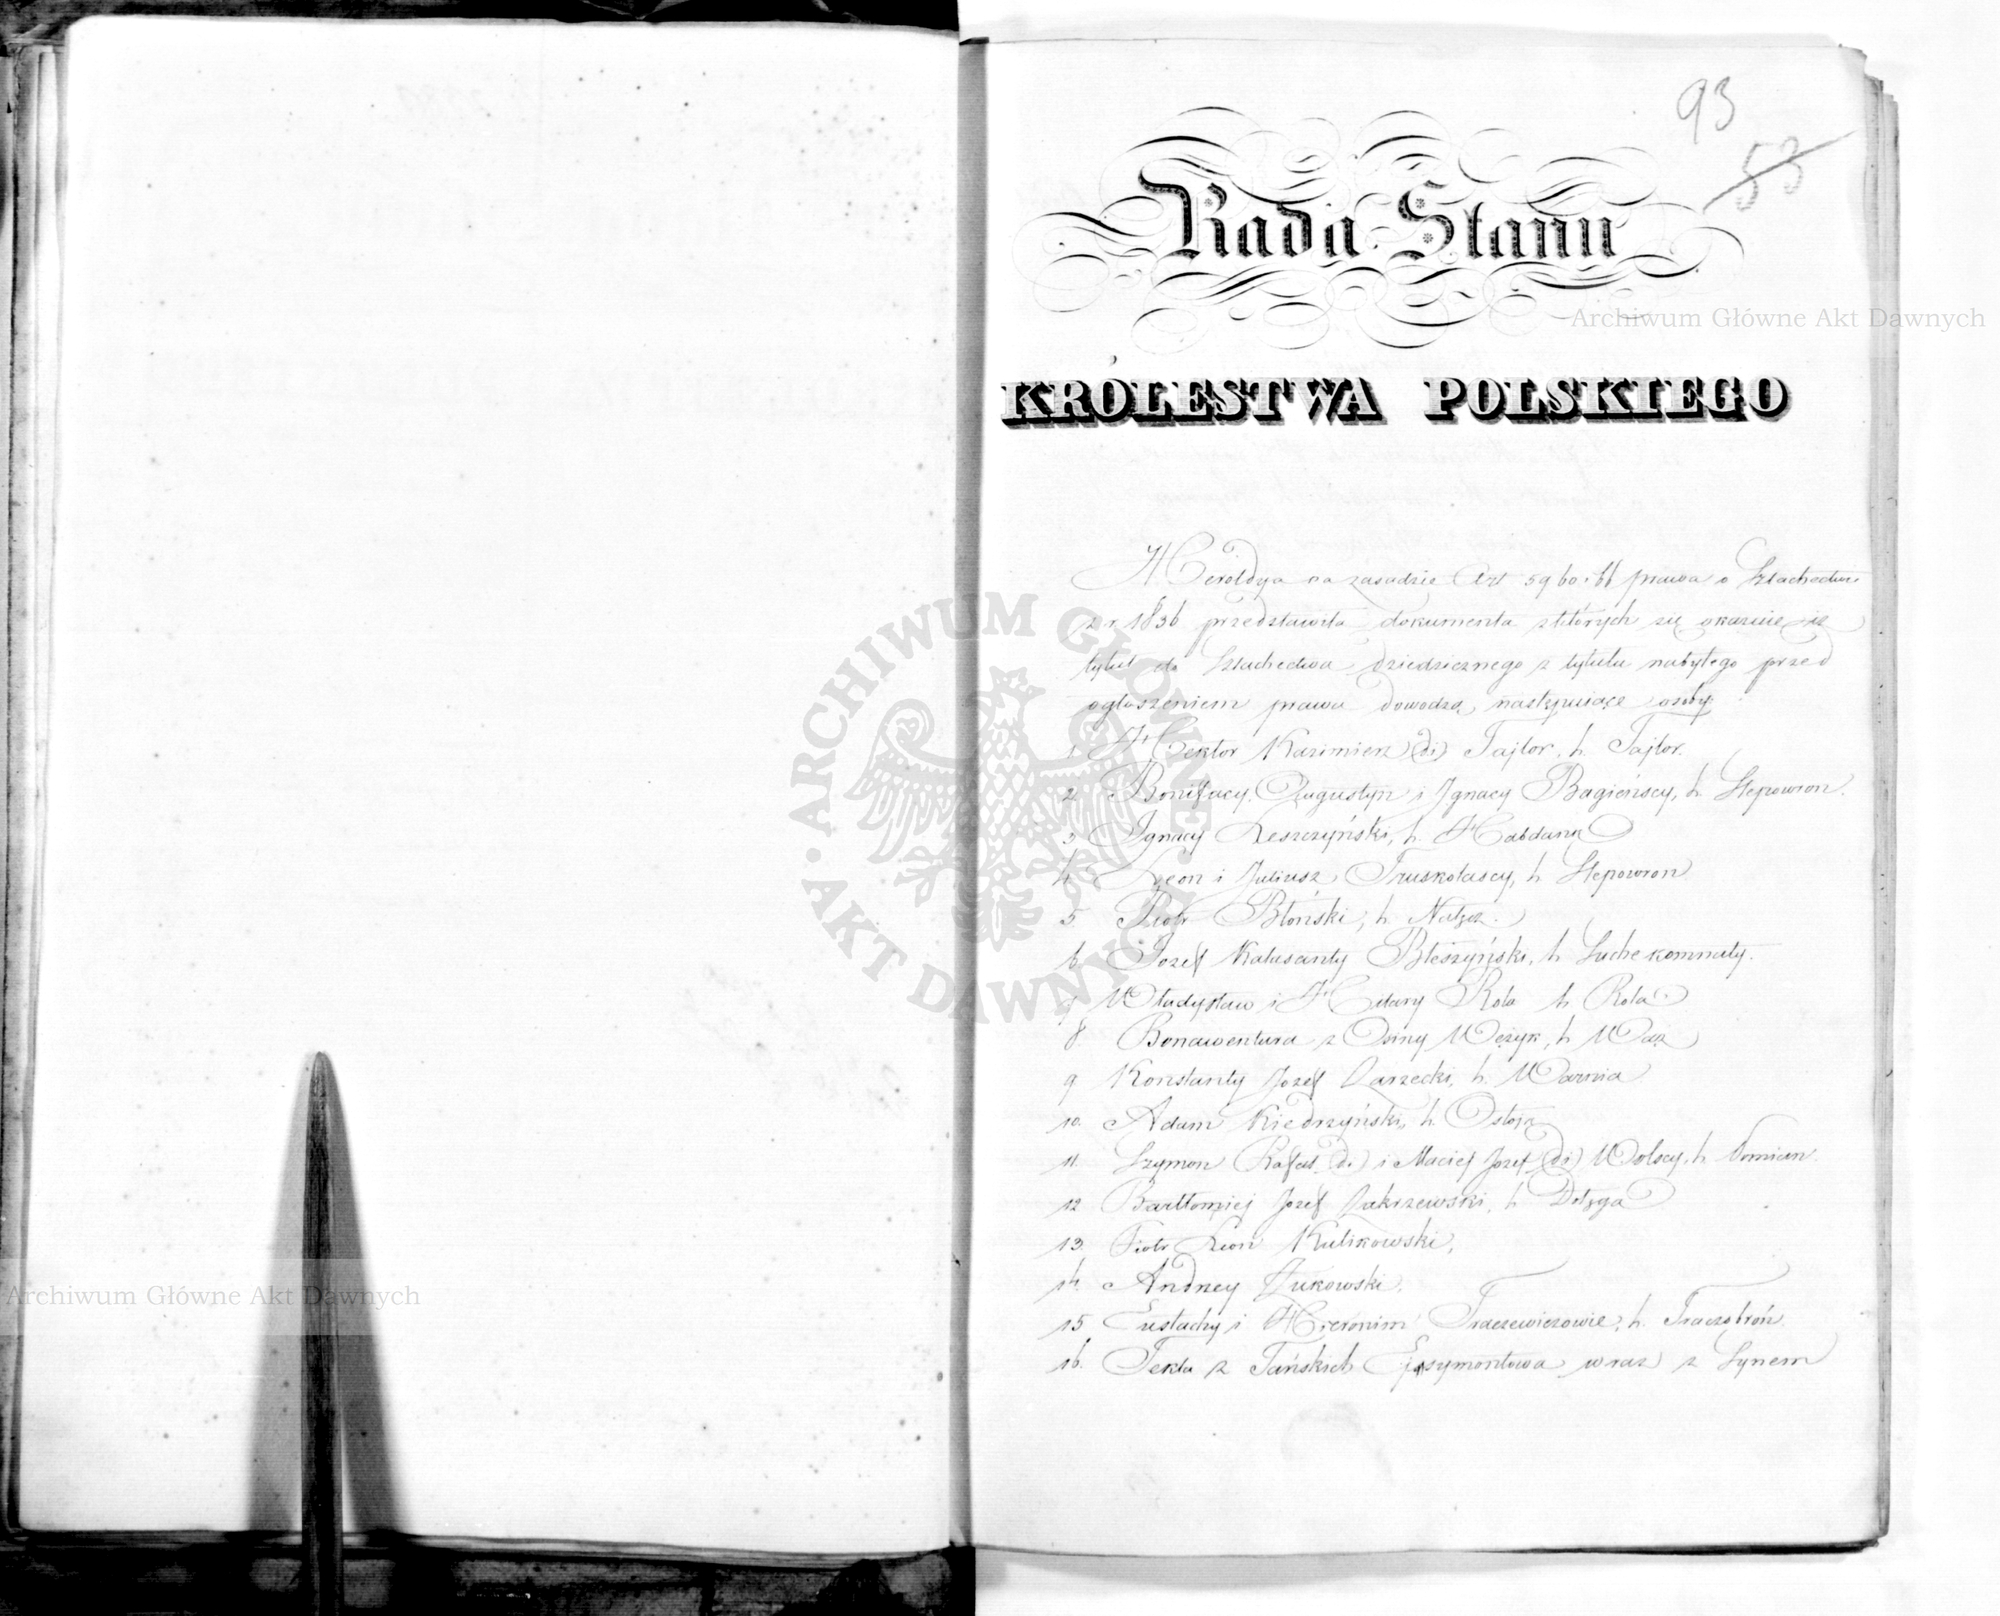 93
53
Rada Stanu
KRÓLESTWA POLSKIEGO
Heroldya na zasadzie Art 59 60 i 61 prawa o Szlachectwie
z r. 1836 przedstawiła dokumenta z których się okazuie iż
tytuł do Szlachectwa dziedzicznego z tytułu nabytego przed
ogłoszeniem prawa dowodzą następuiące osoby
1 Hektor Kazimierz (2i) Tajlor, h. Tajlor.
2 Bonifacy, Augustyn i Ignacy Bagieńscy, h. Ślepowron.
3 Ignacy Leszczyński, h. Habdank
4 Leon i Juliusz Truskolascy, h Ślepowron
5 Piotr Błoński, h. Nałęcz.
6 Józef Kalasanty Bleszyński, h Suche komnaty.
7 Władysław i Hilary Rola h Rola
8 Bonawentura z Osiny Wężyk, h Wąż
9 Konstanty Józef Zarzecki, h. Warnia
10. Adam Kiedrzyński, h. Ostoja
11. Szymon Rafał (2i) i Maciej Józef (2i) Wolscy, h. Pomian.
12 Bartłomiej Józef Zakrzewski, h Dołęga
13. Piotr Leon Kulikowski,
14 Andrzey Żukowski,
15 Eustachy i Hieronim Traczewiczowie, h.
16. Tekla z Tańskich Ejsymontowa wraz z Synem
Archiwum Główne Akt Dawnych
Archiwum Główne Akt Dawnych
ARCHIWUM GŁÓWNE AKT DAWNYCH